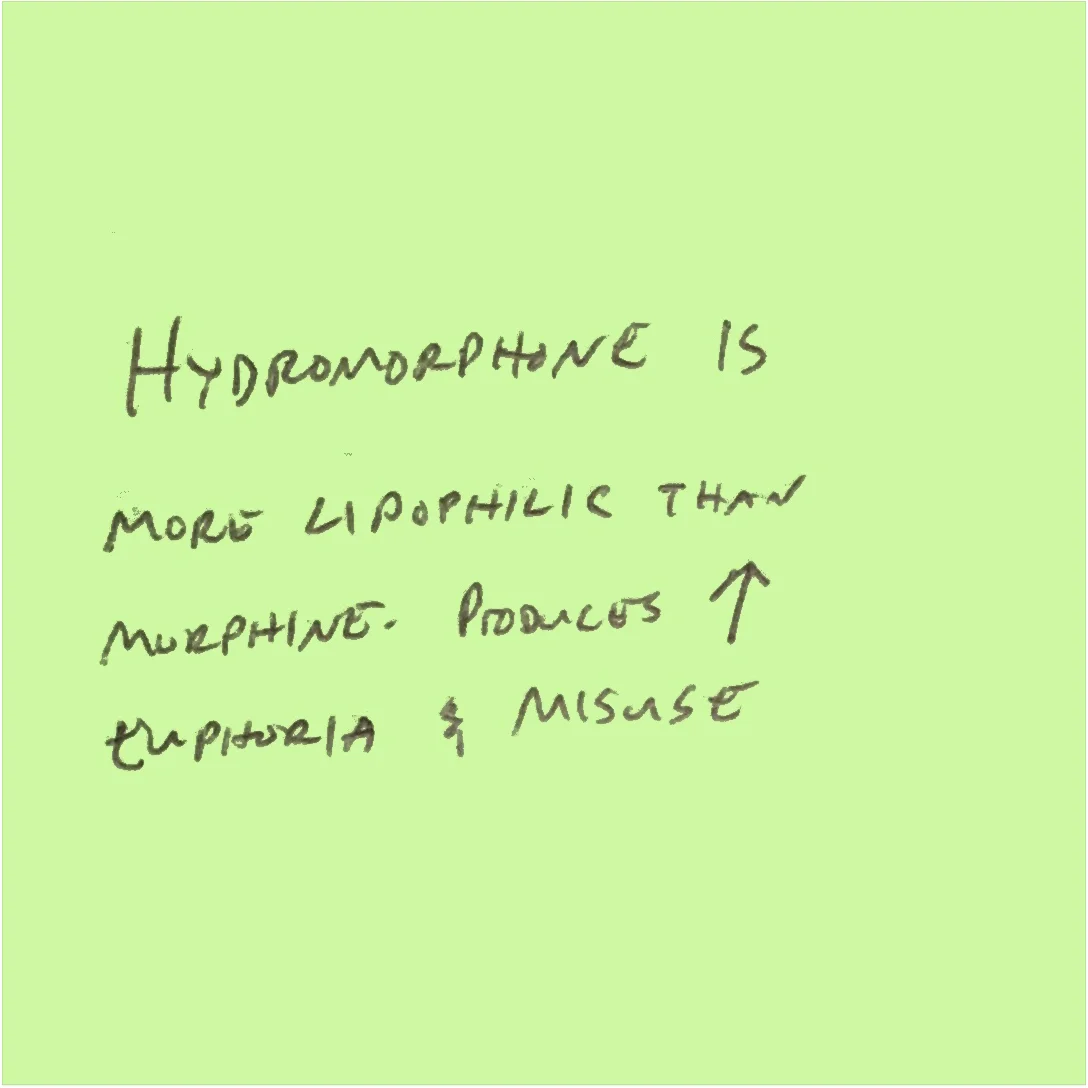 HYDROMORPHONE IS
MORE LIPOPHILIC THAN
MORPHINE. PRODUCES ↑
EUPHORIA & MISUSE